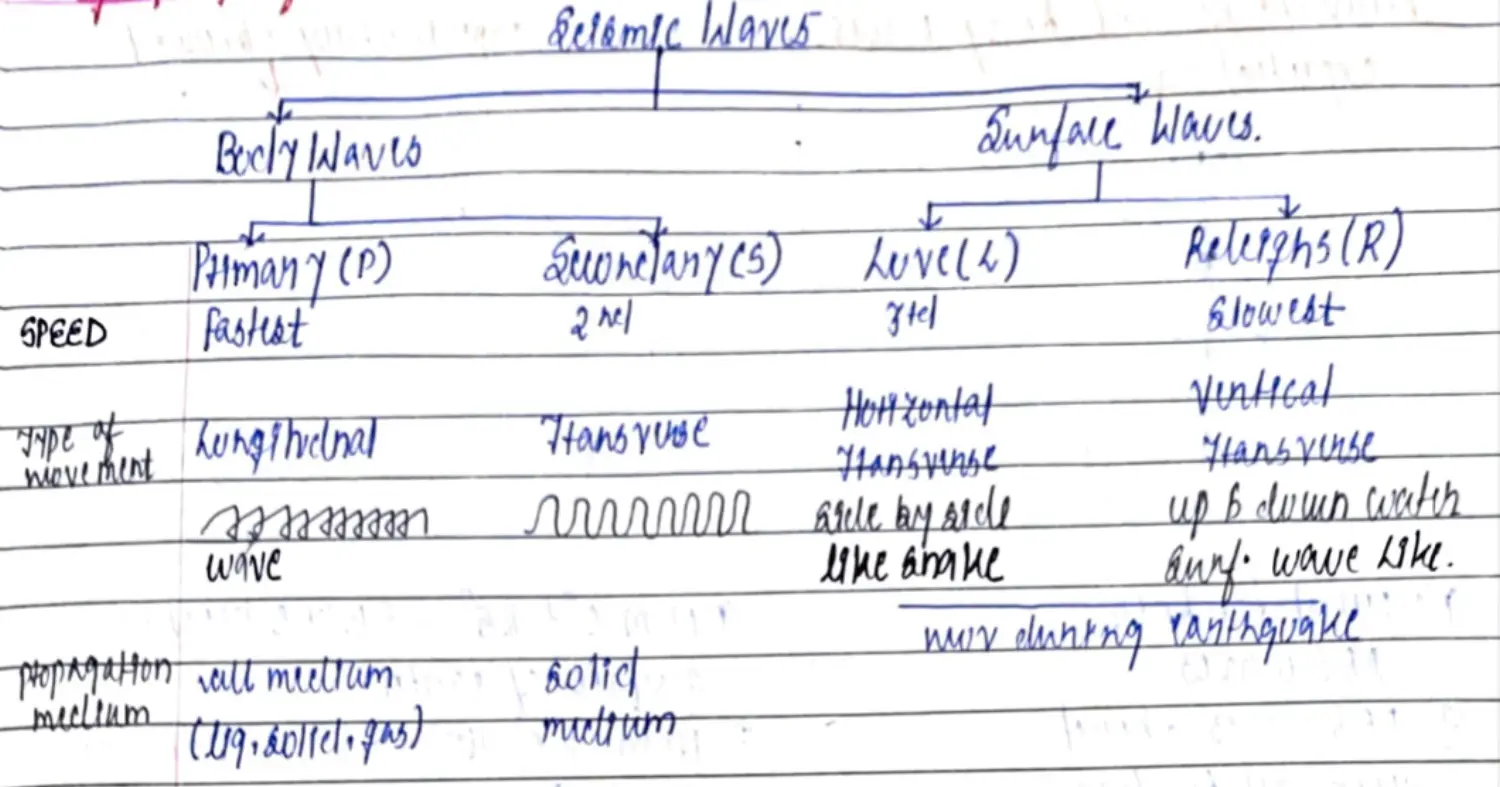 Seismic Waves
Body Waves Surface Waves.
Primary (P) Secondary (S) Love (L) Releighs (R)
SPEED fastest 2nd 3rd slowest
Type of movement Longitudnal Transverse Horizontal Transverse Vertical Transverse
wave side by side like snake up & down water surf. wave like.
mov during earthquake
propagation medium all medium (liq. solid. gas) solid medium